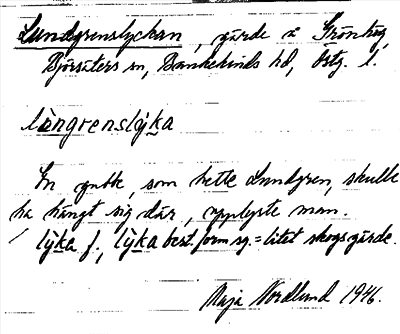 Lundgrenslyckan, gärde å Grönhög,
Björsäters sn, Bankekinds hd, Östg. l.
lu̇ngrenslyka
En gubbe, som hette Lundgren, skulle
ha hängt sig där, upplyste man.
lyka f., lyka best. form sg. = litet skogsgärde.
Maja Nordlund 1946.